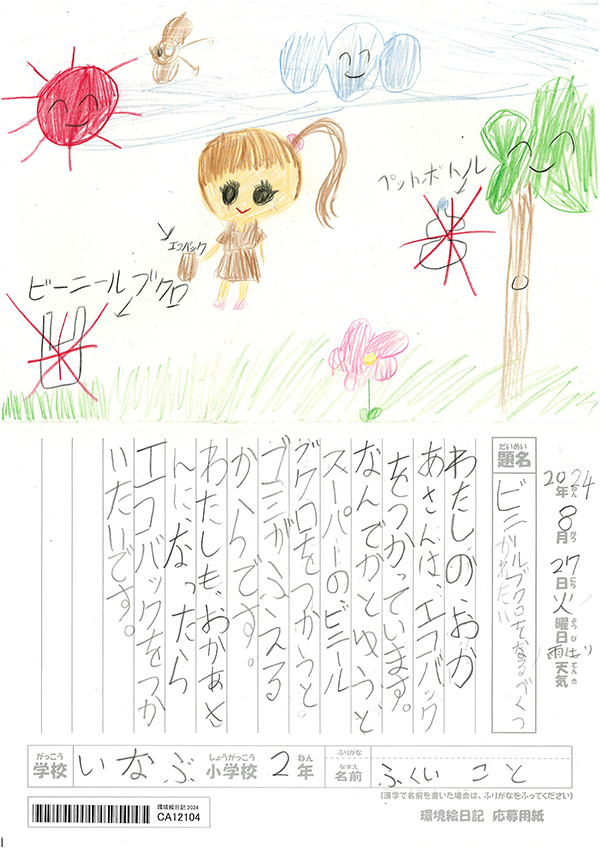 ペットボトル
エコバック
ビーニールブクロ
2024年8月27日火曜日
天気
だいめい
題名
ビニールブクロをなるべくつ
かわない
わたしのおか
あさんは、エコバック
をつかっています。
なんでかとゆうと
スーパーのビニール
ブクロをつかうと
ゴミがふえる
からです。
わたしも、おかあさ
んになったら
エコバックをつか
いたいです。
がっこう しょうがっこう ねん
学校 いなぶ 小学校 2年
ふりがな
なまえ
名前 ふくい こと
(漢字で名前を書いた場合は、ふりがなをふってください)
環境絵日記 2024
CA12104
環境絵日記 応募用紙